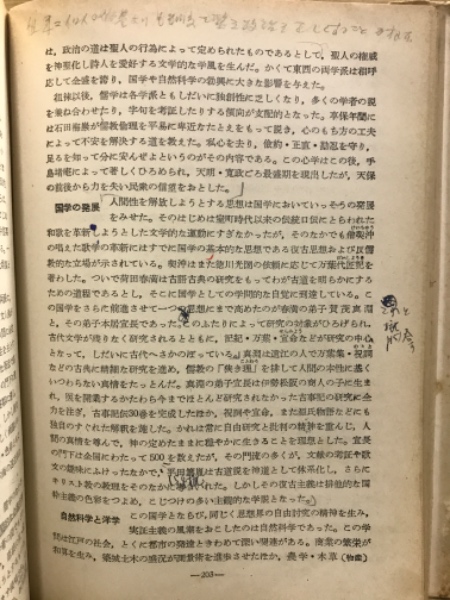 は，政治の道は聖人の行為によって定められたものであるとして，聖人の権威
を神聖化し詩人を愛好する文学的な学風を生んだ。かくて東西の両学派は相呼
応して全盛を誇り，国学や自然科学の勃興に大きな影響を与えた。
徂徠以後，儒学は各学派ともしだいに独創性に乏しくなり，多くの学者の説
を兼ね合わせたり，字句を考証したりする傾向が支配的となった。享保年間に
は石田梅巌が儒教倫理を平易に卑近なたとえをもって説き，心のもち方の工夫
によって不安を解決する道を教えた。私心を去り，倹約・正直・勤忍を守り，
足るを知って分に安んぜよというのがその内容である。この心学はこの後，手
島堵庵によって著しくひろめられ，天明・寛政ごろ最盛期を現出したが，天保
の前後から力を失い民衆の信望をおとした。
国学の発展 人間性を解放しようとする思想は国学においていっそうの発展
をみせた。そのはじめは室町時代以来の伝統口伝にとらわれた
和歌を革新しようとした文学的な運動にすぎなかったが，そのなかでも僧契沖
の唱えた歌学の革新にはすでに国学の基本的な思想である復古思想および反儒
教的な立場が示されている。契沖はまた徳川光圀の依頼に応じて万葉代匠記を
著わした。ついで荷田春満は古語古典の研究をもってわが古道を明らかにする
ための道程であるとし，そこに国学としての学問的な自覚に到達している。こ
の国学をさらに前進させて一つの思想にまで高めたのが春満の弟子賀茂真淵
と，その弟子本居宣長であった。このふたりによって研究の対象がひろげられ，
古代文学が残りなく研究されるとともに，記紀・万葉・宣命などが研究の中心
となって，しだいに古代へさかのぼっている。真淵は遠江の人で万葉集・祝詞
などの古典に精細な研究を進め，儒教の「狭き理」を排して人間の本性に基く
いつわらない真情をたっとんだ。真淵の弟子宣長は伊勢松阪の商人の子に生ま
れ，医を開業するかたわら今まではとんど研究されなかった古事記の研究に全
力を注ぎ，古事記伝30巻を完成したほか，祝詞や宣命，また源氏物語などにも
独自のすぐれた解釈を施した。かれは常に自由研究と批判の精神を重んじ，人
間の真情を尊んで，神の定めたままに穏やかに生きることを理想とした。宣長
の門下は全国にわたって500を数えたが，その門流の多くが，文献の考証や歌
文の趣味にふけったなかで，平田篤胤は古道説を神道として体系化し，さらに
キリスト教の教理をそのなかに導入れた。しかしその復古主義は排他的な国
粋主義の色彩をつよめ，こじつけの多い主観的な学説となった。
自然科学と洋学 この国学とならび，同じく思想界の自由討究の精神を生み，
実証主義の風潮をおこしたのは自然科学であった。この学
問は江戸の社会，とくに都市の発達ときわめて深い関連がある。商業の繁栄が
和算を生み，築城土木の盛況が測量術を進歩させたほか，農学・本草（物産）
—203—